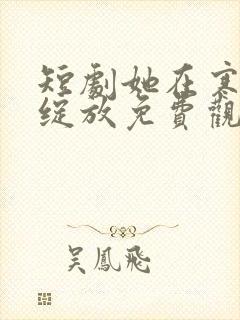 短劇她在寒
綻放免費觀
吳鳳飛